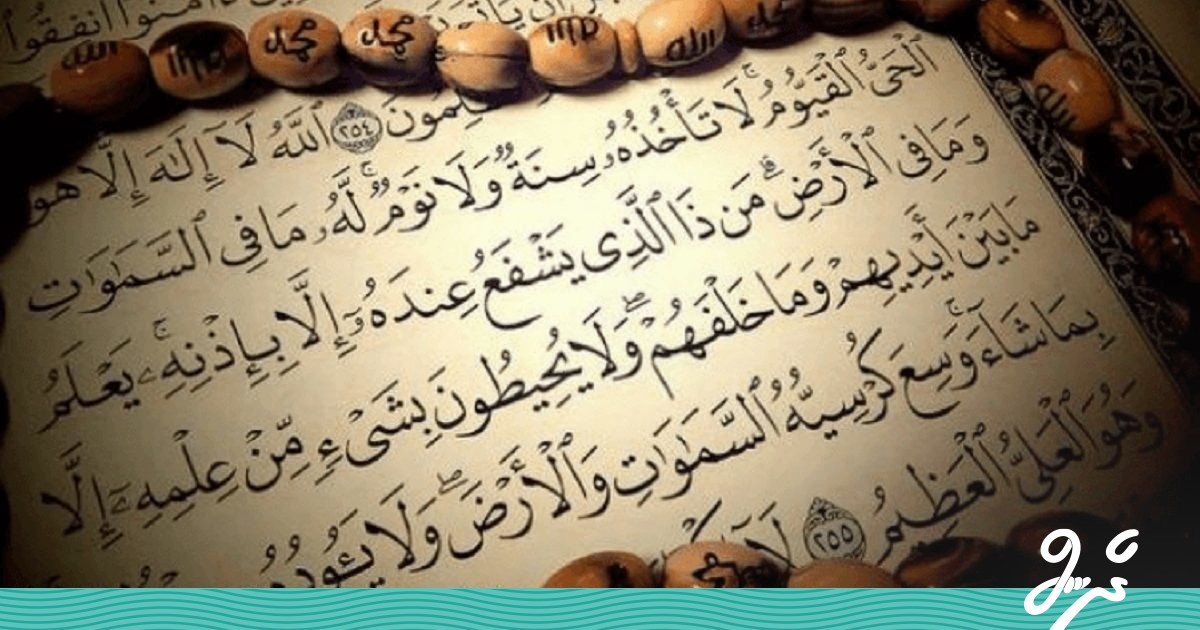 ءامنوا أنفقوا
الله
محمد
محمد
الله
محمد
الله
ٱللَّهُ لَآ إِلَٰهَ إِلَّا هُوَ ٢٥٤
ٱلْحَىُّ ٱلْقَيُّومُ ۚ لَا تَأْخُذُهُۥ سِنَةٌ وَلَا نَوْمٌ ۚ لَّهُۥ مَا فِى ٱلسَّمَٰوَٰتِ
وَمَا فِى ٱلْأَرْضِ ۗ مَن ذَا ٱلَّذِى يَشْفَعُ عِندَهُۥٓ إِلَّا بِإِذْنِهِۦ ۚ يَعْلَمُ
مَا بَيْنَ أَيْدِيهِمْ وَمَا خَلْفَهُمْ ۖ وَلَا يُحِيطُونَ بِشَىْءٍ مِّنْ عِلْمِهِۦٓ إِلَّا
بِمَا شَآءَ ۚ وَسِعَ كُرْسِيُّهُ ٱلسَّمَٰوَٰتِ وَٱلْأَرْضَ ۖ وَلَا يَـُٔودُهُۥ
وَهُوَ ٱلْعَلِىُّ ٱلْعَظِيمُ ٢٥٥ لَآ